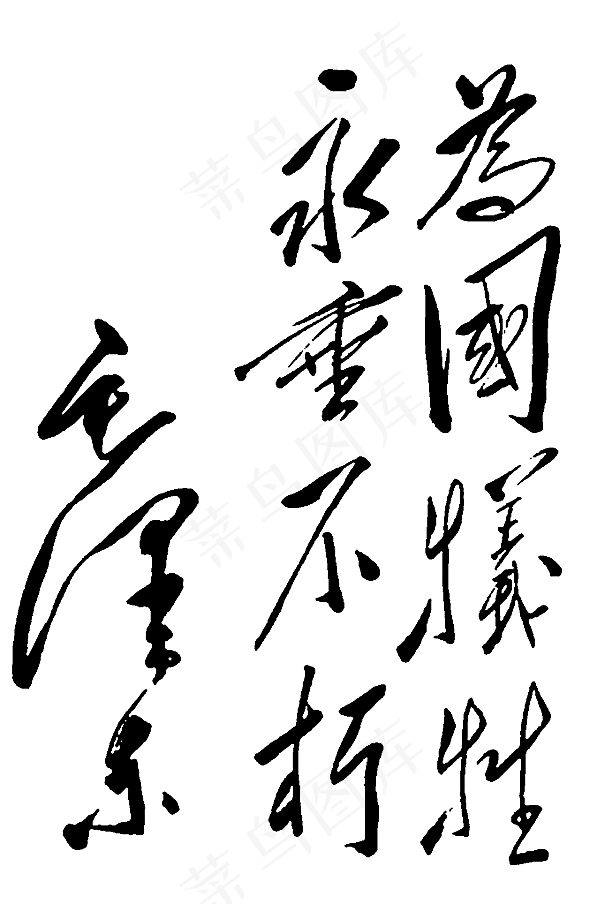 為國犧牲
永垂不朽
毛澤东
菜鸟图库
菜鸟图库
菜鸟图库